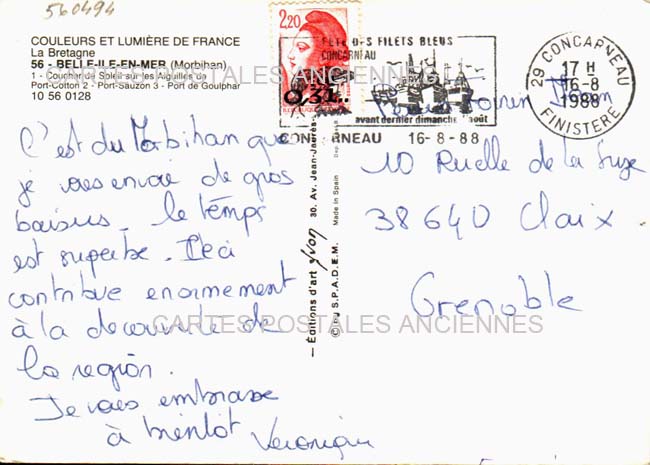 560494
COULEURS ET LUMIÈRE DE FRANCE
La Bretagne
56 - BELLE-ILE-EN-MER (Morbihan)
1 - Coucher de Soleil sur les Aiguilles de
Port-Coton 2 - Port-Sauzon 3 - Port de Goulphar
10 56 0128
C'est du Morbihan que
je vous envoie de gros
baisers. le temps
est superbe. Ceci
contribue enormement
à la decouverte de
la region.
Je vous embrasse
à bientôt Veronique
2,20
0,31
FETE DES FILETS BLEUS
CONCARNEAU
avant dernier dimanche août
CONCARNEAU 16-8-88
29 CONCARNEAU
17 H
16-8
1988
FINISTERE
10 Ruelle de la Suze
38640 Claix
Grenoble
— Éditions d'art Yvon 30. Av. Jean-Jaurès
© by S.P.A.D.E.M. Made in Spain
CARTES POSTALES ANCIENNES
CARTES POSTALES ANCIENNES